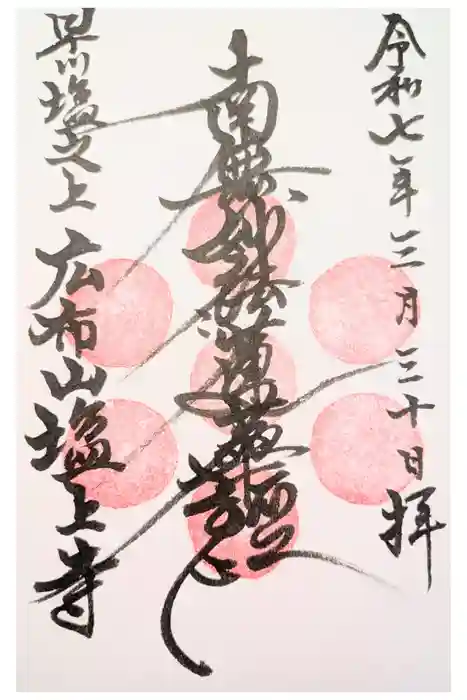 令和七年三月三十日拝
南無妙法蓮華経
早川塩之上 広布山塩上寺